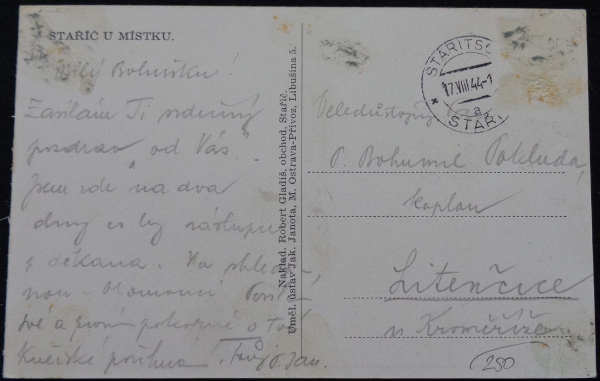 STAŘÍČ U MÍSTKU.
Milý Bohoušku!
Zasílám Ti srdečný
pozdrav od Vás.
Jsem zde na dva
dny
děkana. Na shleda-
nou Olomouci
své a prosí pokorně o
Kněžské Tvůj Jan.
Náklad. Robert Gladiš, obchod, Stařič.
Uměl. ústav Jak. Janota, M. Ostrava-Přívoz, Libušina 5.
STARITSCH
17.VIII.44-1
a
STAŘ
Veledůstojný
P. Bohumil Pokluda,
kaplan
Litenčice
u Kroměříže
250